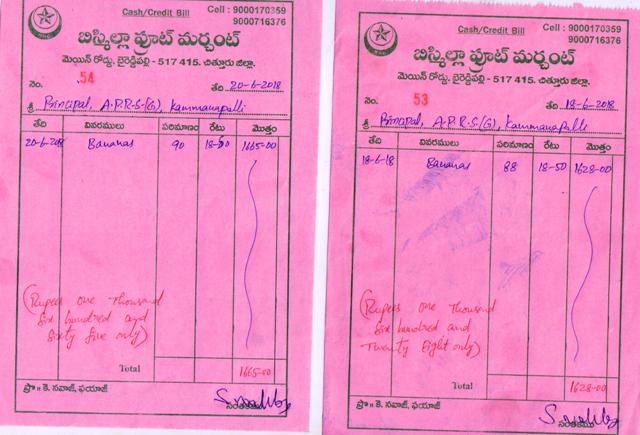 Cash/Credit Bill
Cell : 9000170359
9000716376
బిస్మిల్లా ఫ్రూట్ మర్చంట్
మెయిన్ రోడ్డు, బైరెడ్డిపల్లి - 517 415. చిత్తూరు జిల్లా.
నెం. 54 తేది 20-6-2018
శ్రీ Principal, A.P.R.S.(G), Kammanapalli
తేది వివరములు పరిమాణం రేటు మొత్తం
20-6-2018 Bananas 90 18-50 1665-00
(Rupees one thousand
six hundred and
sixty five only)
Total 1665-00
ప్రొ॥ కె. నవాజ్, ఫయాజ్
సంతకము
Cash/Credit Bill
Cell : 9000170359
9000716376
బిస్మిల్లా ఫ్రూట్ మర్చంట్
మెయిన్ రోడ్డు, బైరెడ్డిపల్లి - 517 415. చిత్తూరు జిల్లా.
నెం. 53 తేది 18-6-2018
శ్రీ Principal, A.P.R.S.(G), Kammanapalli
తేది వివరములు పరిమాణం రేటు మొత్తం
18-6-18 Bananas 88 18-50 1628-00
(Rupees one thousand
six hundred and
Twenty Eight only)
Total 1628-00
ప్రొ॥ కె. నవాజ్, ఫయాజ్
సంతకము